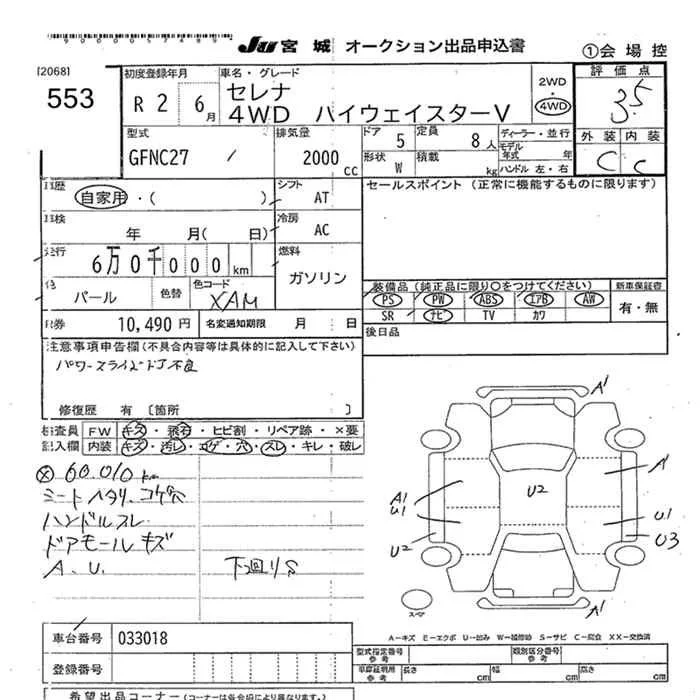 JU 宮城 オークション出品申込書
①会場控
[2068]
553
初度登録年月
R 2 6月
車名・グレード
セレナ
4WD ハイウェイスターV
2WD
4WD
評価点
3.5
外装 内装
C C
型式
GFNC27
排気量
2000 cc
ドア 5
定員 8人
形状 W
積載 kg
ディーラー・並行
モデル年式 年
ハンドル 左・右
歴
自家用・( )
シフト AT
セールスポイント(正常に機能するものに限ります)
検
年 月( 日)
冷房 AC
行
6万0千000km
燃料
ガソリン
パール
色替
色コード
XAM
装備品(純正品に限り○をつけてください)
新車保証書
PS PW ABS エアB AW
SR ナビ TV カワ
有・無
券 10,490円
名変通知期限 月 日
後日品
注意事項申告欄(不具合内容等は具体的に記入して下さい)
パワースライドドア不良
修復歴 有 〔箇所 〕
検査員
記入欄
FW キズ・飛石・ヒビ割・リペア跡・×要
内装 キズ・汚レ・コゲ・穴・スレ・キレ・破レ
60,010km
シートヘタリ、コゲ穴
ハンドルスレ
ドアモールキズ
A.U.
下廻りS
A1
A1
U2
A1
U1
U2
U1
U3
A1
スペア
A-キズ E-エクボ U-凹み W-補修跡 S-サビ C-腐食 XX-交換済
車台番号 033018
登録番号
型式指定番号
参考
類別区分番号
参考
車庫証明用
参考
長さ cm
幅 cm
高さ cm
希望出品コーナー(コーナーは各会場により異なります。)